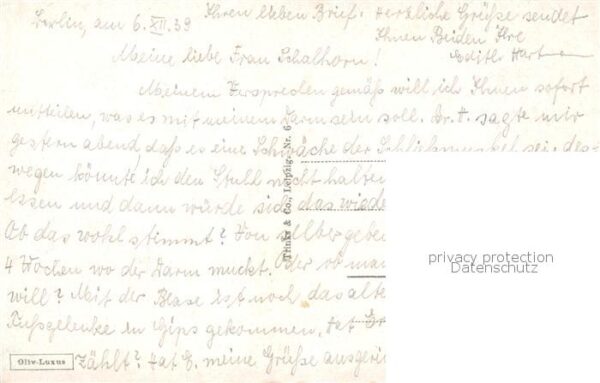 Ihren lieben Brief. Herzliche Grüße sendet
Berlin, am 6. XII. 39
Ihnen Beiden Ihre
Edith Hart
Meine liebe Frau Schalhorn!
Meinem Versprechen gemäß will ich Ihnen sofort
mitteilen, was es mit meinem Darm sein soll. Dr. H. sagte mir
gestern abend, daß es eine Schwäche der Schließmuskel sei, des-
wegen könnte ich den Stuhl nicht halten
essen und dann würde sich das wiede
Ob das wohl stimmt? Von selber gebe
4 Wochen wo der Darm muckt. Oder ob man
will? Mit der Blase ist noch das alte
Fußgelenke in Gips gekommen. Hat Er
zählt? Hat E. meine Grüße ausgeri
Trinks & Co., Leipzig. Nr. 6
Oliv-Luxus
privacy protection
Datenschutz